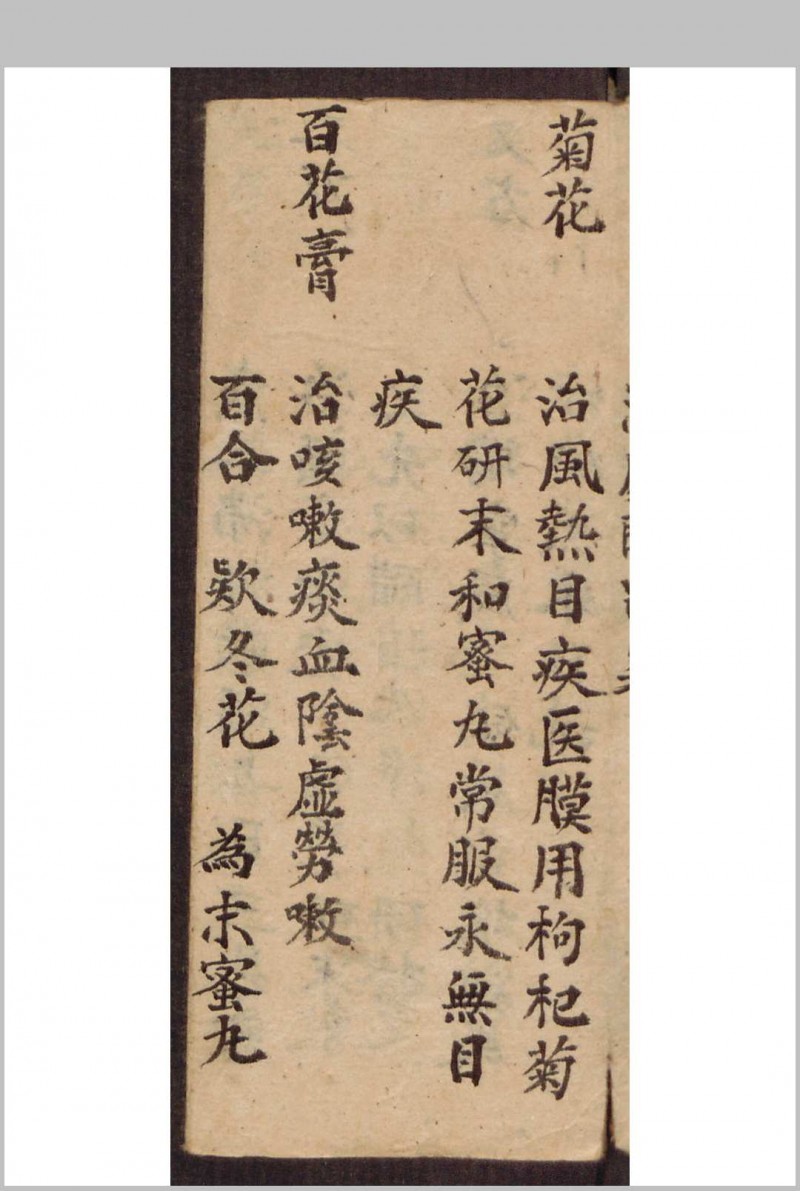 菊花
治風熱目疾医膜用枸杞菊
花研末和蜜丸常服永無目
疾
百花膏
治咳嗽痰血陰虛勞嗽
百合 欵冬花 為末蜜丸